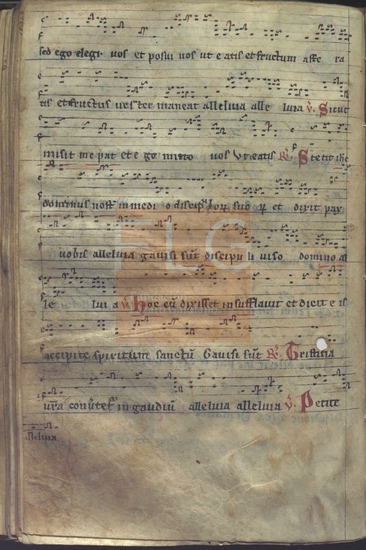 sed ego elegi vos et posui vos ut e atis et fructum affe ra
tis et fructus vester maneat alleluia alle luia V. Sicut
misit me pat et e go mitto vos Vt eatis R. Stetit
dominus nost in medi o discip lorum suo et dixit pax
vobis alleluia gavisi sunt discipu li viso domino al
le lui a V. Hoc cum dixisset insufflavit et dicit e is
accipite spiritum sanctum Gavisi sunt R. Tristicia
vestra in gaudium alleluia alleluia V. Petite
alleluia
FLG